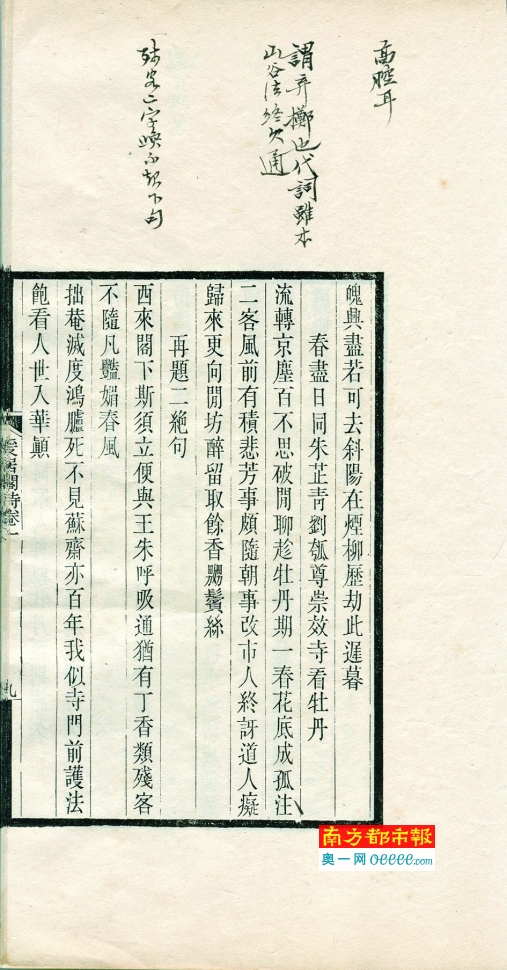 高腔耳
謂弄擲也代詞雖本
山谷法終欠通
殘客二字喚不起下句
愧興盡若可去斜陽在煙柳歷劫此遲暮
春盡日同朱芷青劉瓠尊崇效寺看牡丹
流轉京塵百不思破閒聊趁牡丹期一春花底成孤注
二客風前有積悲芳事頗隨朝事改市人終訝道人癡
歸來更向閒坊醉留取餘香嬲鬢絲
再題二絕句
西來閣下斯須立便與王朱呼吸通猶有丁香類殘客
不隨凡豔媚春風
拙菴滅度鴻臚死不見蘇齋亦百年我似寺門前護法
飽看人世入華顛
爰居閣詩卷一
九
南方都市報
奧一网 oeeee.com